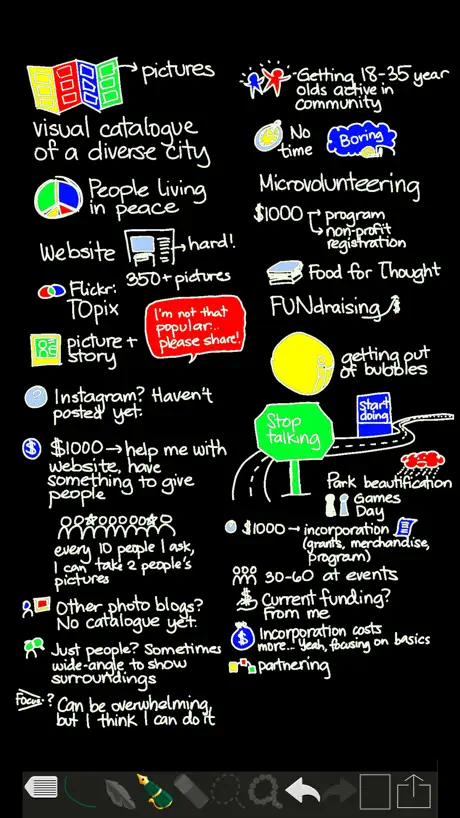 pictures
visual catalogue
of a diverse city
People living
in peace
Website
hard!
350+ pictures
Flickr:
TOpix
I'm not that
popular...
please share!
picture +
story
? Instagram? Haven't
posted yet.
$ $1000 → help me with
website, have
something to give
people
every 10 people I ask,
I can take 2 people's
pictures
Other photo blogs?
No catalogue yet.
Just people? Sometimes
wide-angle to show
surroundings
Focus ? Can be overwhelming,
but I think I can do it
Getting 18-35 year
olds active in
community
No
time
Boring
Microvolunteering
$1000
program
non-profit
registration
Food for Thought
FUNdraising $
getting out
of bubbles
Start
doing
Stop
talking
Park beautification
Games
Day
$1000 → incorporation
(grants, merchandise,
program)
30-60 at events
$ Current funding?
From me
$ Incorporation costs
more... Yeah, focusing on basics
partnering